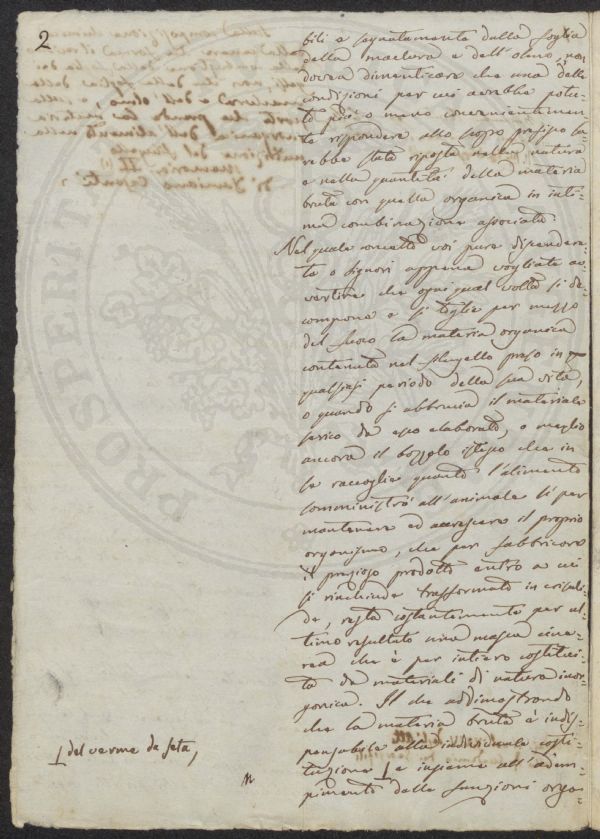 2
bili e segnatamente dalla foglia
della maclura e dell'olmo, non
dovrà dimenticare che una delle
condizioni per cui avrebbe potu-
to più o meno convenientemen-
te rispondere allo stesso prefisso sa-
rebbe stata riposta nella natura
e nella quantità della materia
bruta con quella organica in inti-
ma combinazione associata.
Nel quale concetto voi pure scenderе-
te o signori appena vogliate av-
vertire che ogni qual volta si de-
compone e si toglie per mezzo
del fuoco la materia organica
contenuta nel filugello preso in
qualsiasi periodo della sua vita,
o quando si abbrucia il materiale
serico da esso elaborato, o meglio
ancora il bozzolo istesso che in
se raccoglie quanto l'alimento
somministrò all'animale sì per
mantenere ed accrescere il proprio
organismo, che per fabbricare
il prezioso prodotto entro a cui
si rinchiude trasformato in crisali-
de, resta costantemente per ul-
timo resultato una massa cine-
rea che è per intiero costitui-
ta da materiali di natura inor-
ganica. Il che addimostrando
che la materia bruta è indis-
pensabile alla individuale costi-
tuzione e insieme all'adem-
pimento delle funzioni orga-
del verme da seta,
PROSPERITA